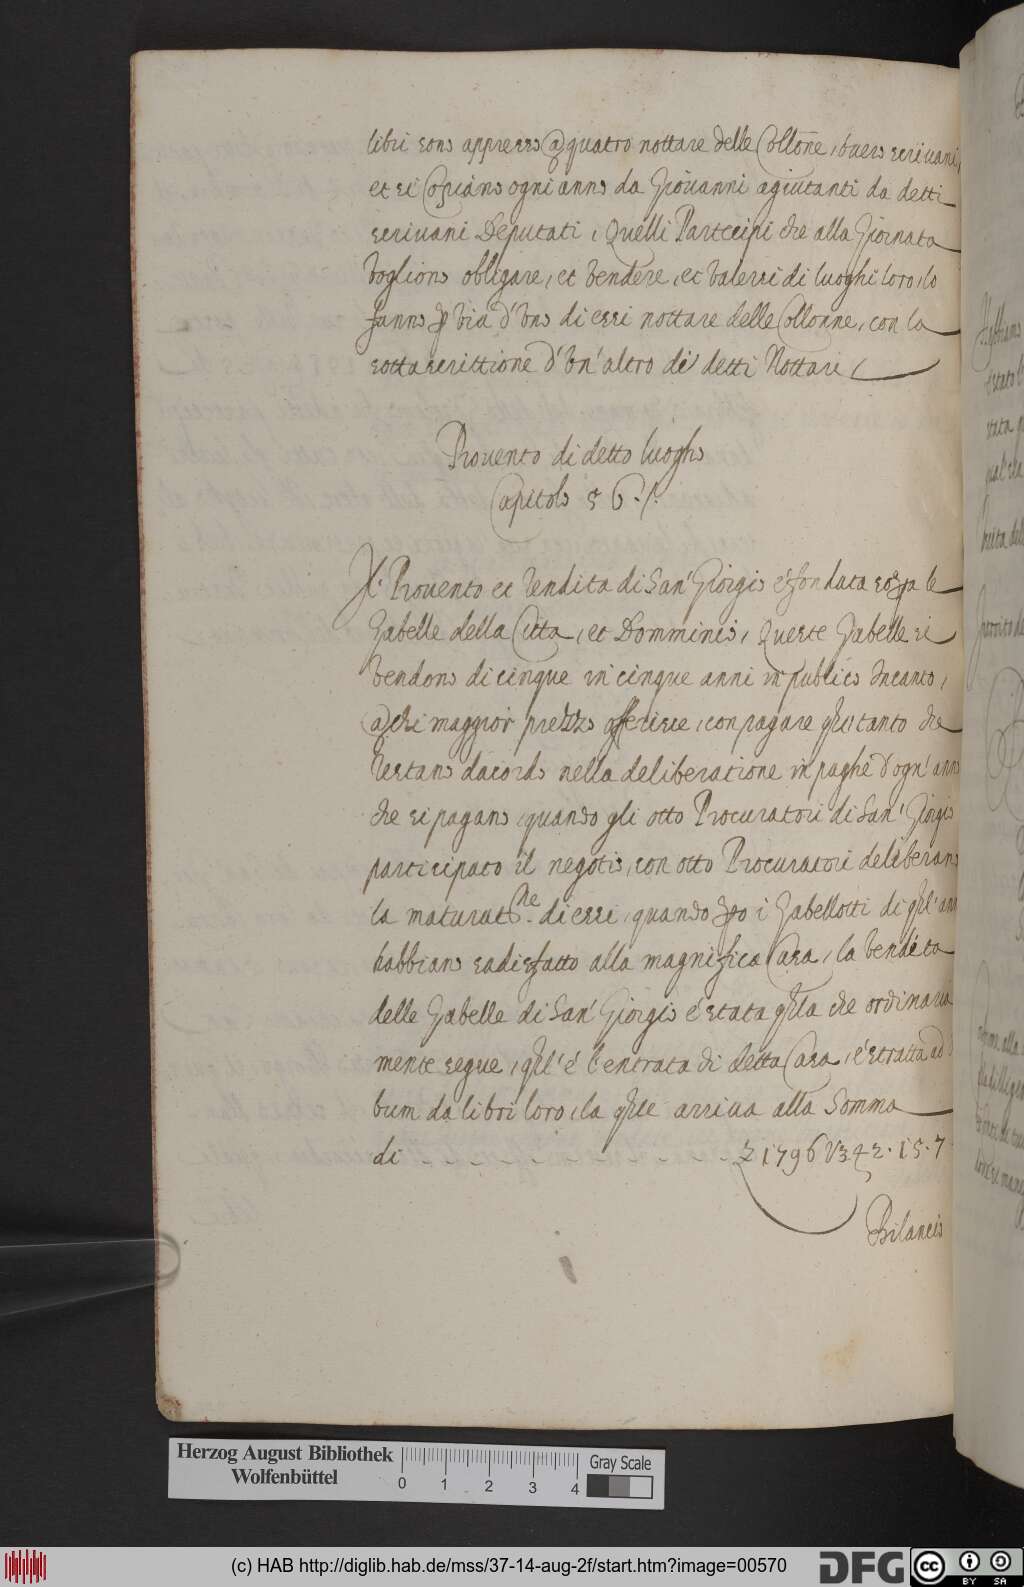 libri sono appresso a quatro nottare delle Collone, ò vero scrivani,
et si Copiano ogni anno da Giovanni agiutanti da detti
scrivani Deputati, Quelli Partecipi che alla Giornata
vogliono obligare, et vendere, et valersi di luoghi loro, lo
fanno per via d'uno di essi nottare delle Collonne, con la
sottascrittione d'un'altro de' detti Nottare
Provento di detto luogho
Capitolo 56./.
Il Provento et Rendita di San' Giorgio é fondata sopra le
Gabelle della Citta, et Domminio, Queste Gabelle si
vendono di cinque in cinque anni in publico Incanto,
a chi maggior prezzo offerisce, con pagare qlli tanto che
restano dacordo nella deliberatione in paghe d'ogn' anno
che si pagano, quando gli otto Procuratori di San' Giorgio
participato il negotio, con otto Procuratori deliberano
la maturatne di essi, quando però i Gabellotti di qll' anno
habbiano sadisfatto alla magnifica Casa, la vendéta
delle Gabelle di San' Giorgio é stata qlla che ordinaria
mente segue, qll' é l'entrata di detta Casa, é stratta ad
bum da libri loro, la qlle arriva alla Somma
di - - - - - - - - - - £ 1796V342.15.7
Bilancio
Herzog August Bibliothek
Wolfenbüttel
0 1 2 3 4
Gray Scale
(c) HAB http://diglib.hab.de/mss/37-14-aug-2f/start.htm?image=00570
DFG
cc BY SA